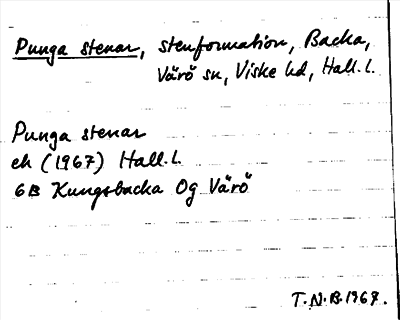 Punga stenar, stenformation, Backa,
Värö sn, Viske hd, Hall. l.
Punga stenar
ek (1967) Hall. l.
6B Kungsbacka Og Värö
T.N.B. 1967.